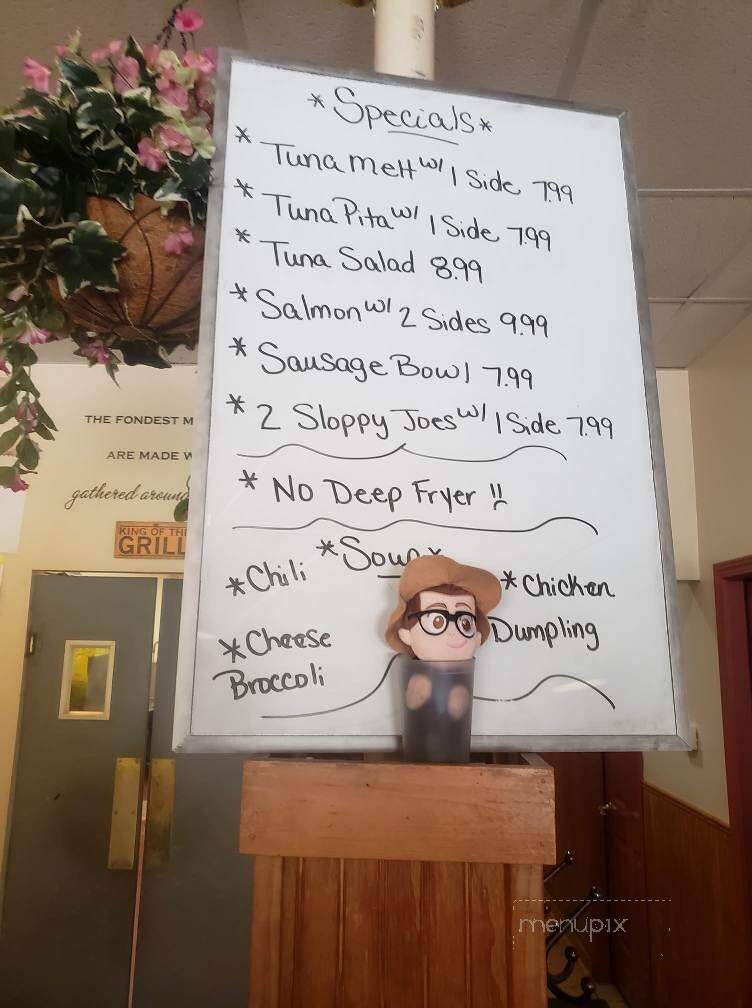 *Specials*
* Tuna melt w/ 1 Side 7.99
* Tuna Pita w/ 1 Side 7.99
* Tuna Salad 8.99
* Salmon w/ 2 Sides 9.99
* Sausage Bowl 7.99
* 2 Sloppy Joes w/ 1 Side 7.99
* No Deep Fryer !!
*Soup*
*Chili
*Chicken
Dumpling
*Cheese
Broccoli
THE FONDEST
ARE MADE
gathered around
KING OF THE
GRILL
menupix